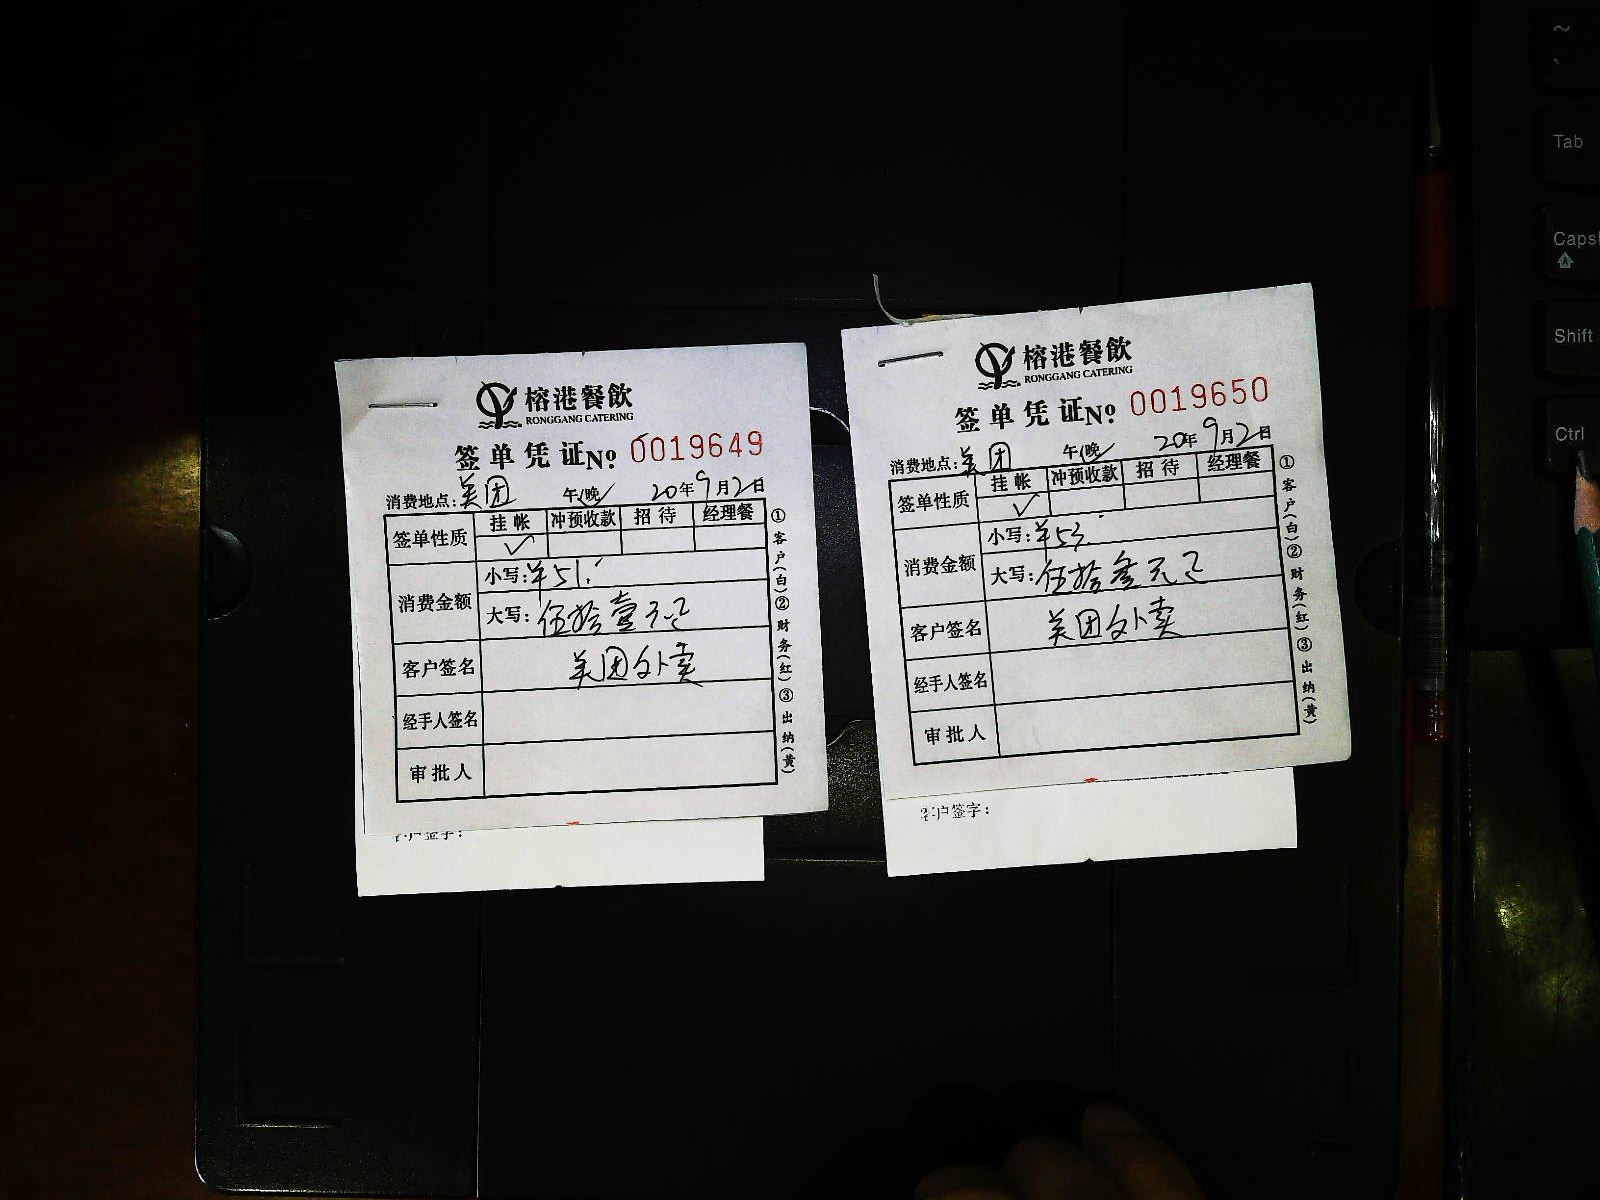 榕港餐飲
RONGGANG CATERING
签单凭证No. 0019649
消费地点:美团 午/晚 20年9月2日
签单性质 挂帐 冲预收款 招待 经理餐
✓
消费金额 小写:¥51.
大写:伍拾壹元
客户签名 美团外卖
经手人签名
审批人
①客户(白)②财务(红)③出纳(黄)
客户签字:
榕港餐飲
RONGGANG CATERING
签单凭证No. 0019650
消费地点:美团 午/晚 20年9月2日
签单性质 挂帐 冲预收款 招待 经理餐
✓
消费金额 小写:¥53.
大写:伍拾叁元
客户签名 美团外卖
经手人签名
审批人
①客户(白)②财务(红)③出纳(黄)
客户签字:
~
Tab
Caps
Shift
Ctrl